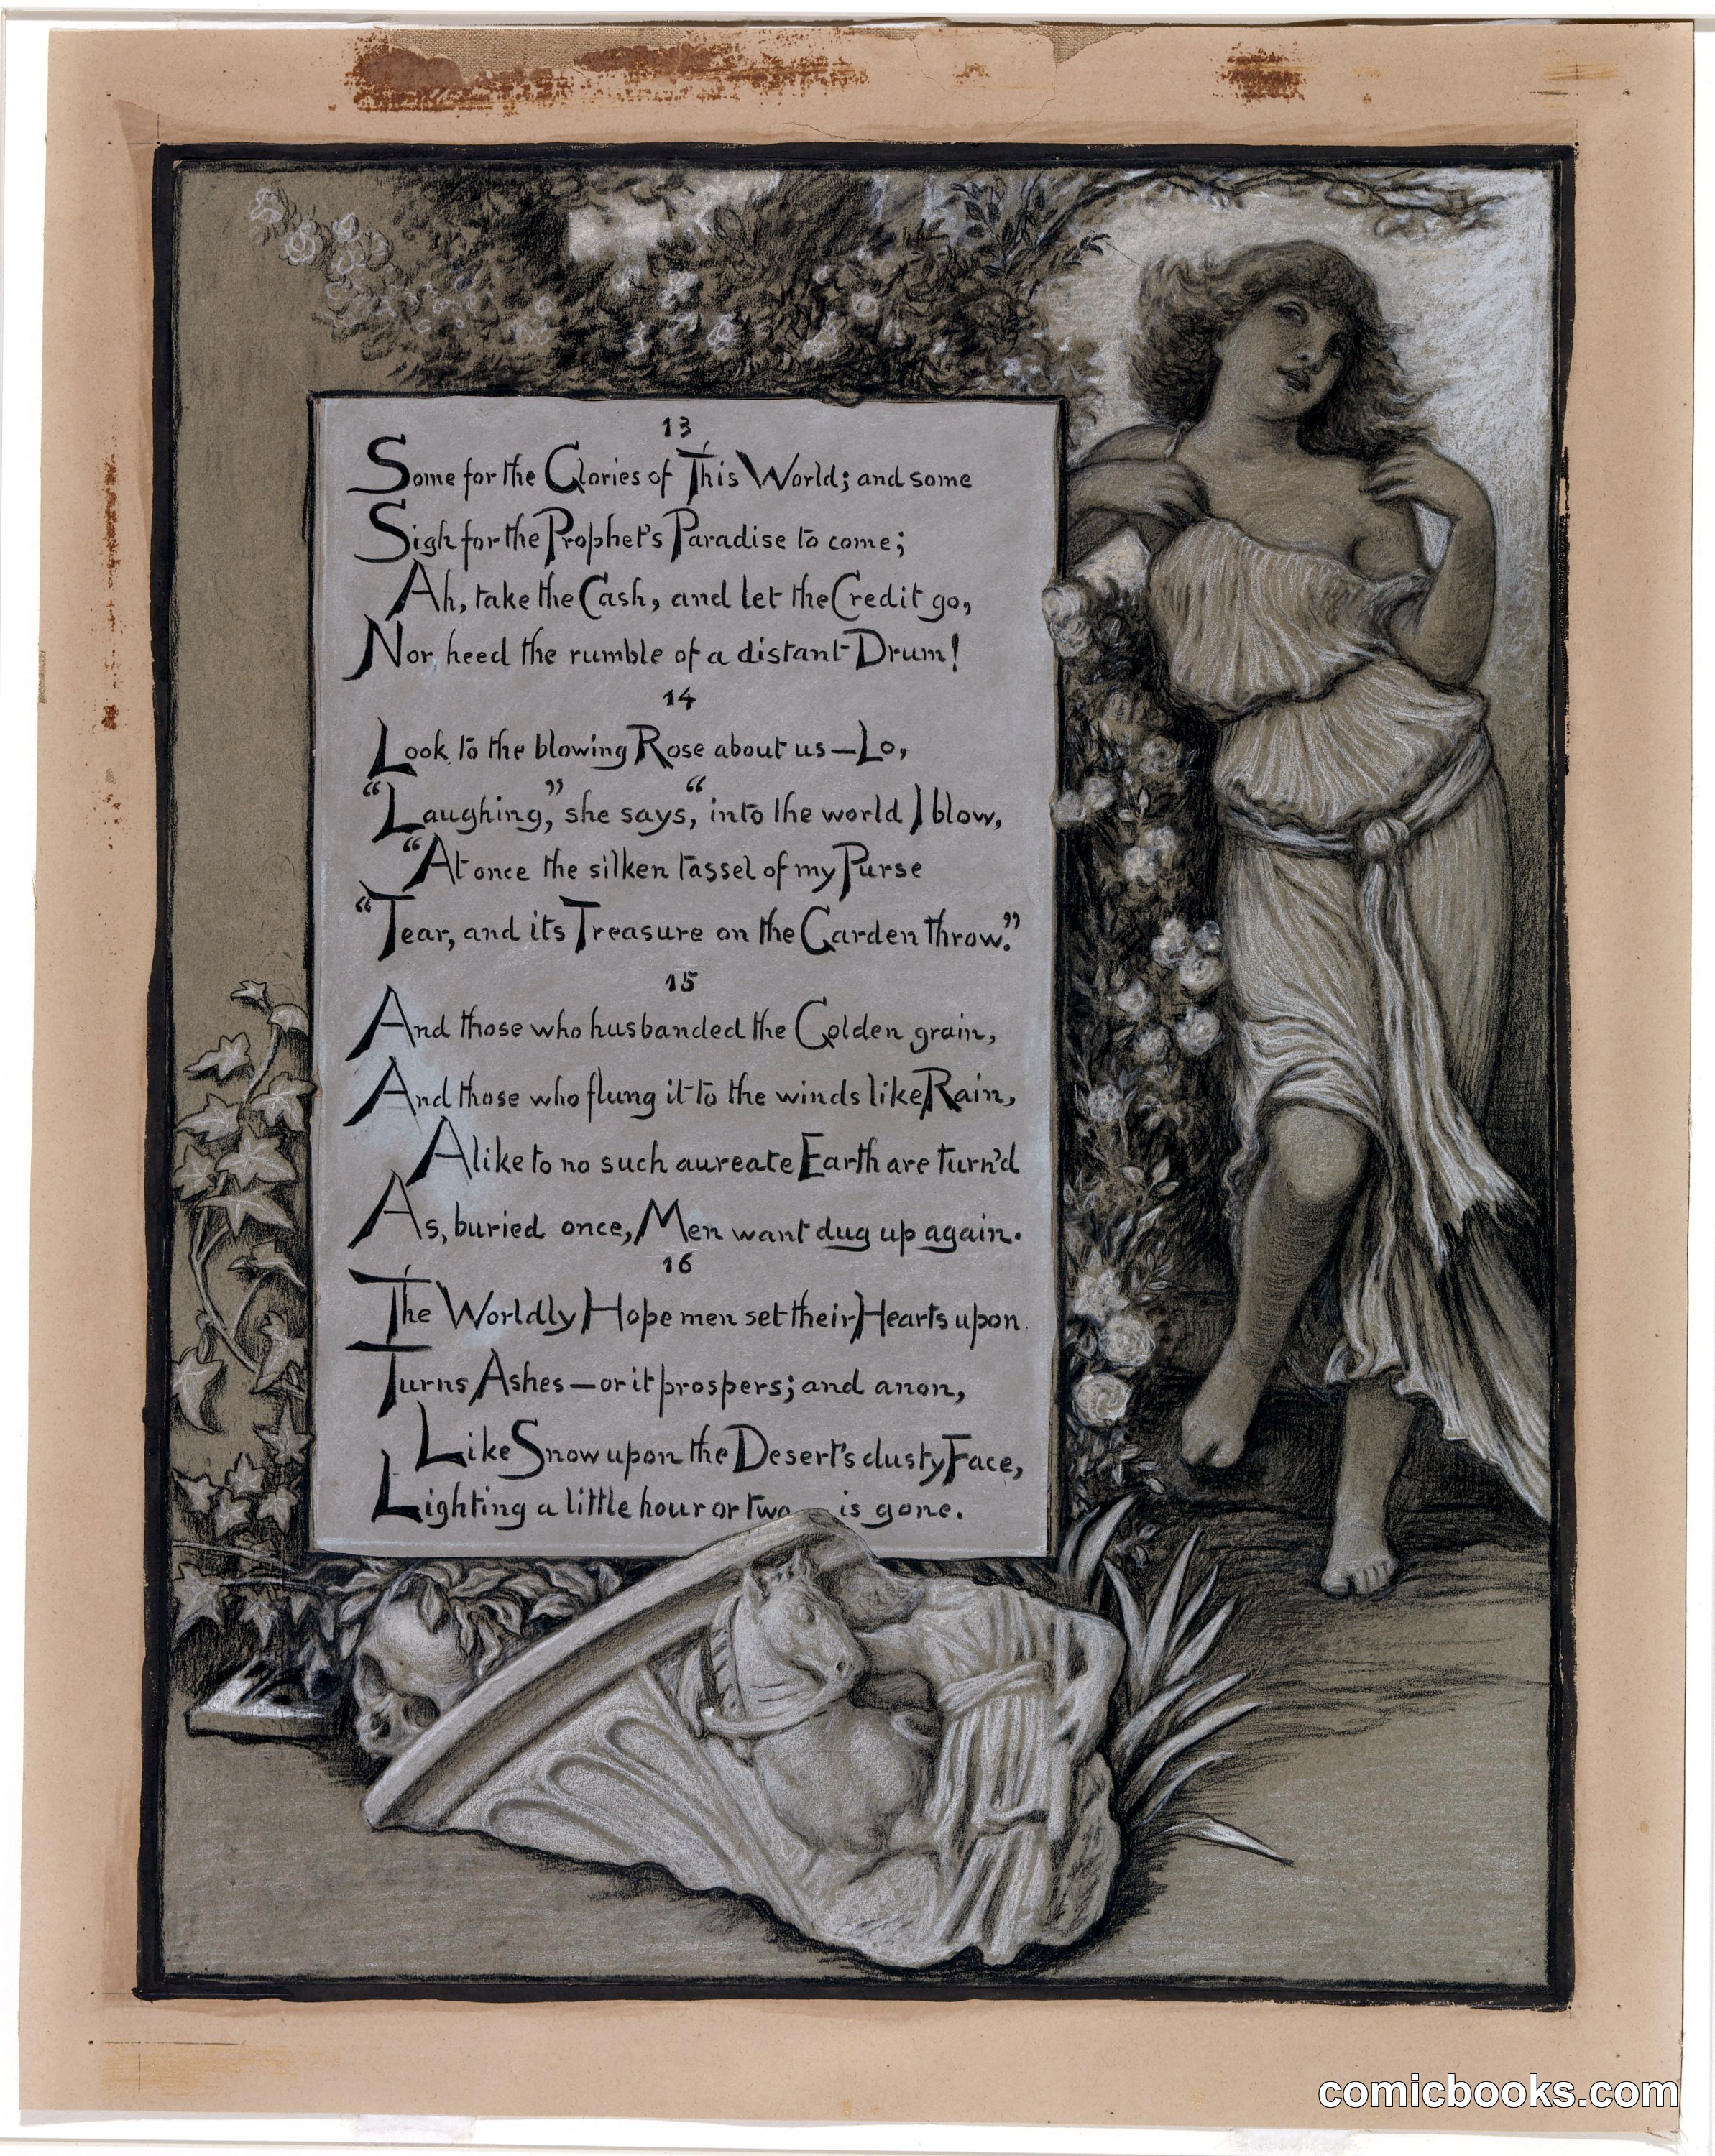 13
Some for the Glories of This World; and some
Sigh for the Prophet's Paradise to come;
Ah, take the Cash, and let the Credit go,
Nor heed the rumble of a distant Drum!
14
Look to the blowing Rose about us—Lo,
"Laughing," she says, "into the world I blow,
"At once the silken tassel of my Purse
"Tear, and its Treasure on the Garden throw."
15
And those who husbanded the Golden grain,
And those who flung it to the winds like Rain,
Alike to no such aureate Earth are turn'd
As, buried once, Men want dug up again.
16
The Worldly Hope men set their Hearts upon
Turns Ashes—or it prospers; and anon,
Like Snow upon the Desert's dusty Face,
Lighting a little hour or two is gone.
comicbooks.com